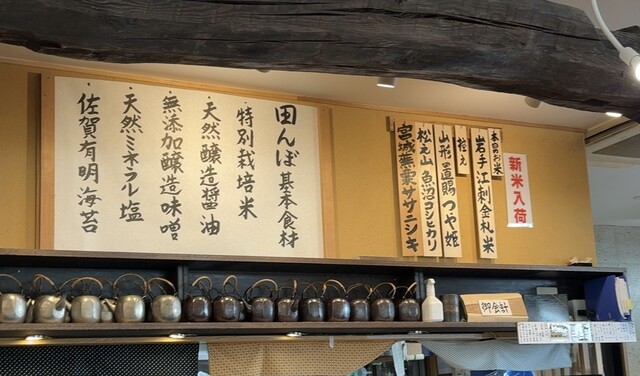 田んぼ基本食材
・特別栽培米
・天然醸造醤油
・無添加醸造味噌
・天然ミネラル塩
・佐賀有明海苔
新米入荷
本日のお米
岩手江刺金札米
控え
山形置賜つや姫
魚沼コシヒカリ
宮城無農薬ササニシキ
御会計